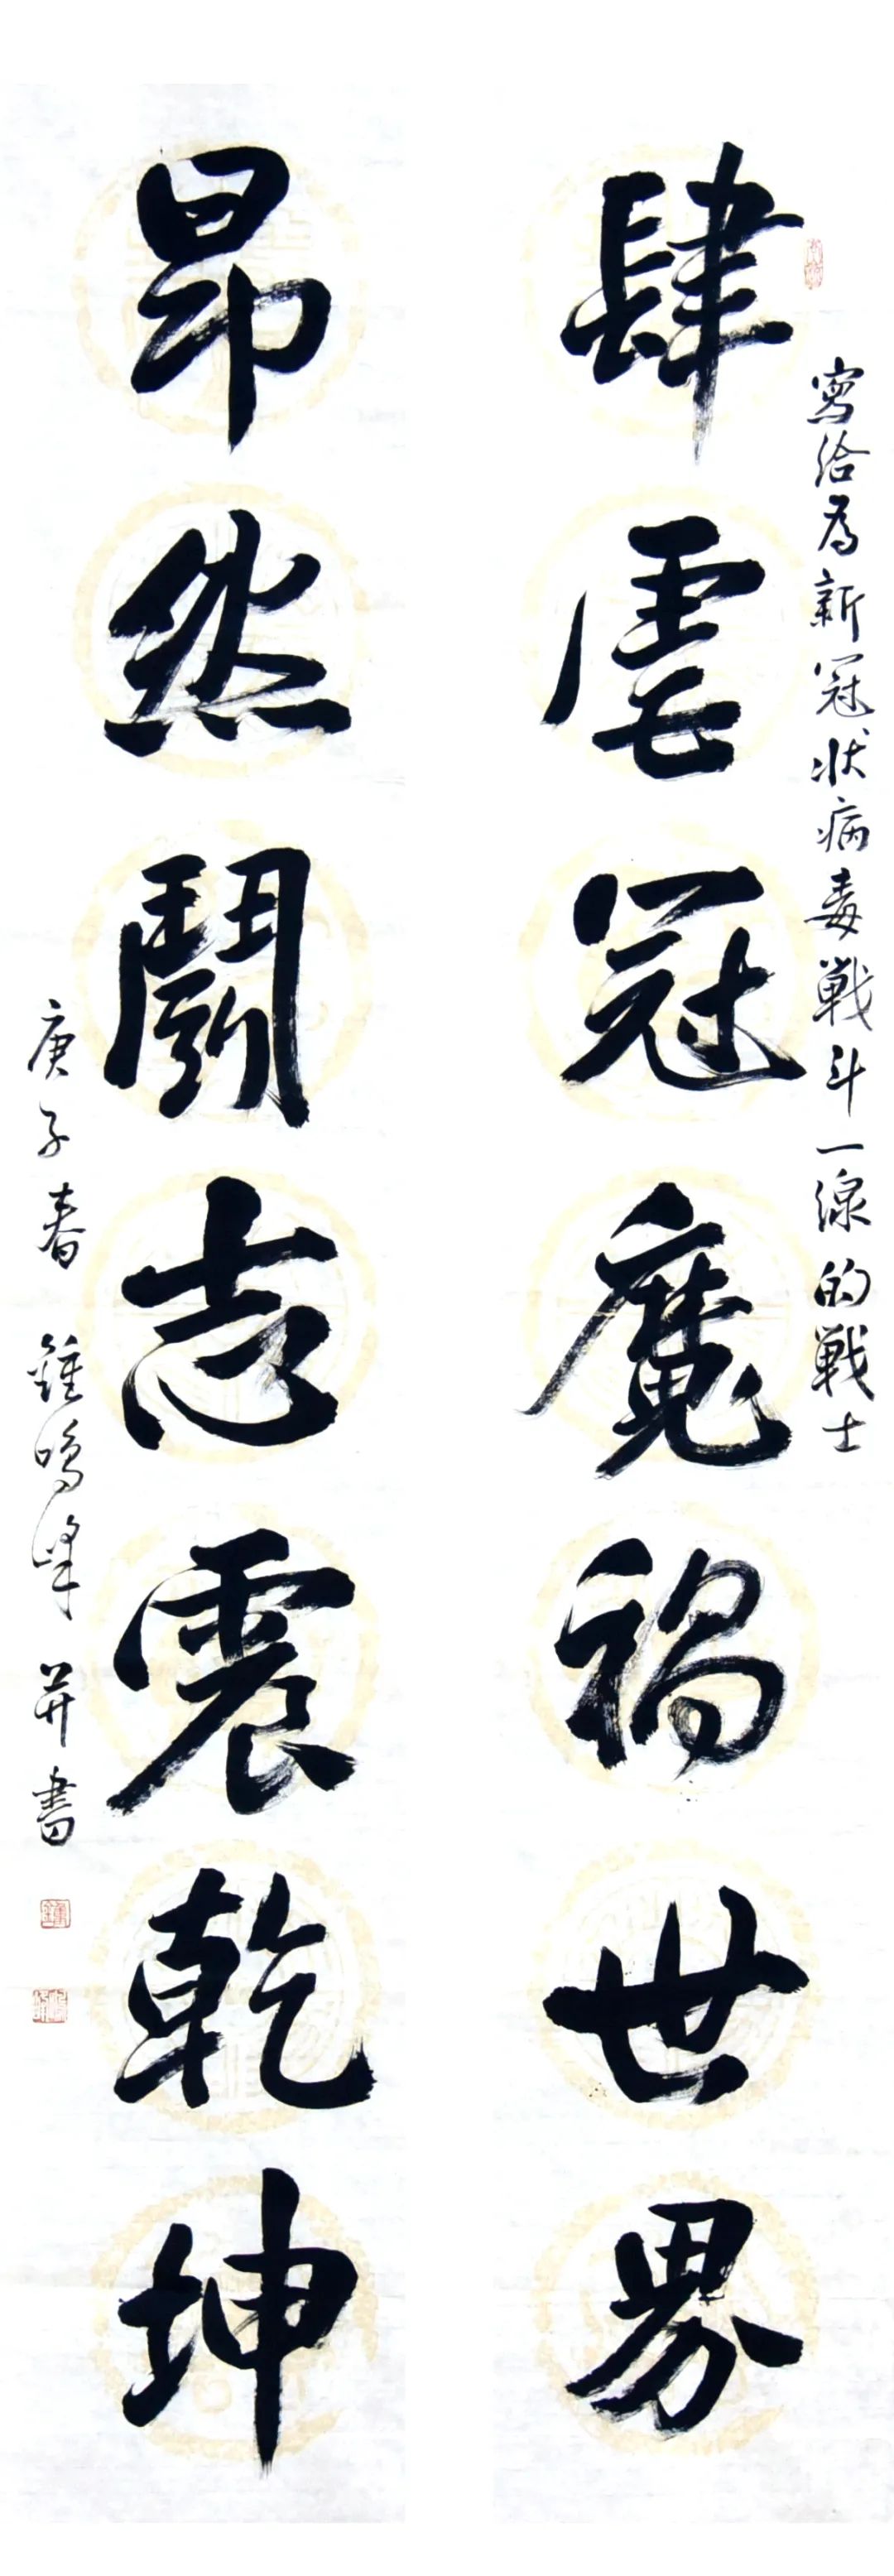 寫给为新冠状病毒戰斗一線的戰士
肆虐冠魔禍世界
昂然鬭志震乾坤
庚子春 鍾鳴峰并書